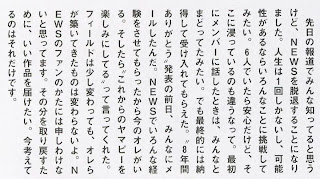 先日の報道でみんな知ってると思う
けど、NEWSを脱退することになり
ました。人生は1回しかないし、可能
性があるならいろんなことに挑戦して
みたい。6人でいたら安心だけど、そ
こに浸っているのも違うなって。最初
にメンバーに話したときは、みんなと
まどってたみたい。でも最終的には納
得して受け入れてもらえた。〝8年間
ありがとう〟発表の前日、みんなにメ
ールしたんだ。NEWSでいろんな経
験をさせてもらったから今のオレがい
る。そしたら〝これからのヤマピーを
楽しみにしてる〟って言ってくれた。
フィールドは少し変わっても、オレら
が築いてきたものは変わらないよ。N
EWSのファンのかたには申しわけな
いと思ってます。その分を取り戻すた
めに、いい作品を届けたい。今考えて
るのはそれだけです。